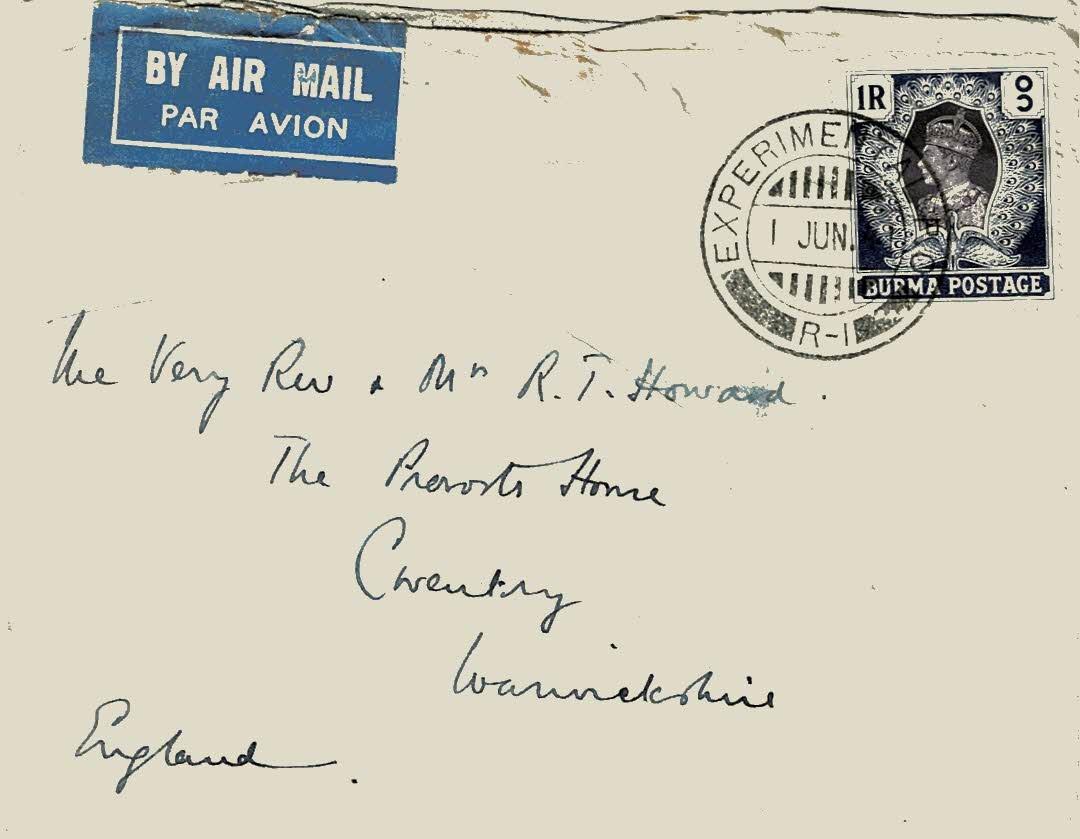 BY AIR MAIL
PAR AVION
1R
၁
BURMA POSTAGE
EXPERIMENTAL P.O.
1 JUN.
R-1
The Very Rev & Mrs R. T. Howard.
The Provosts House
Coventry
Warwickshire
England.